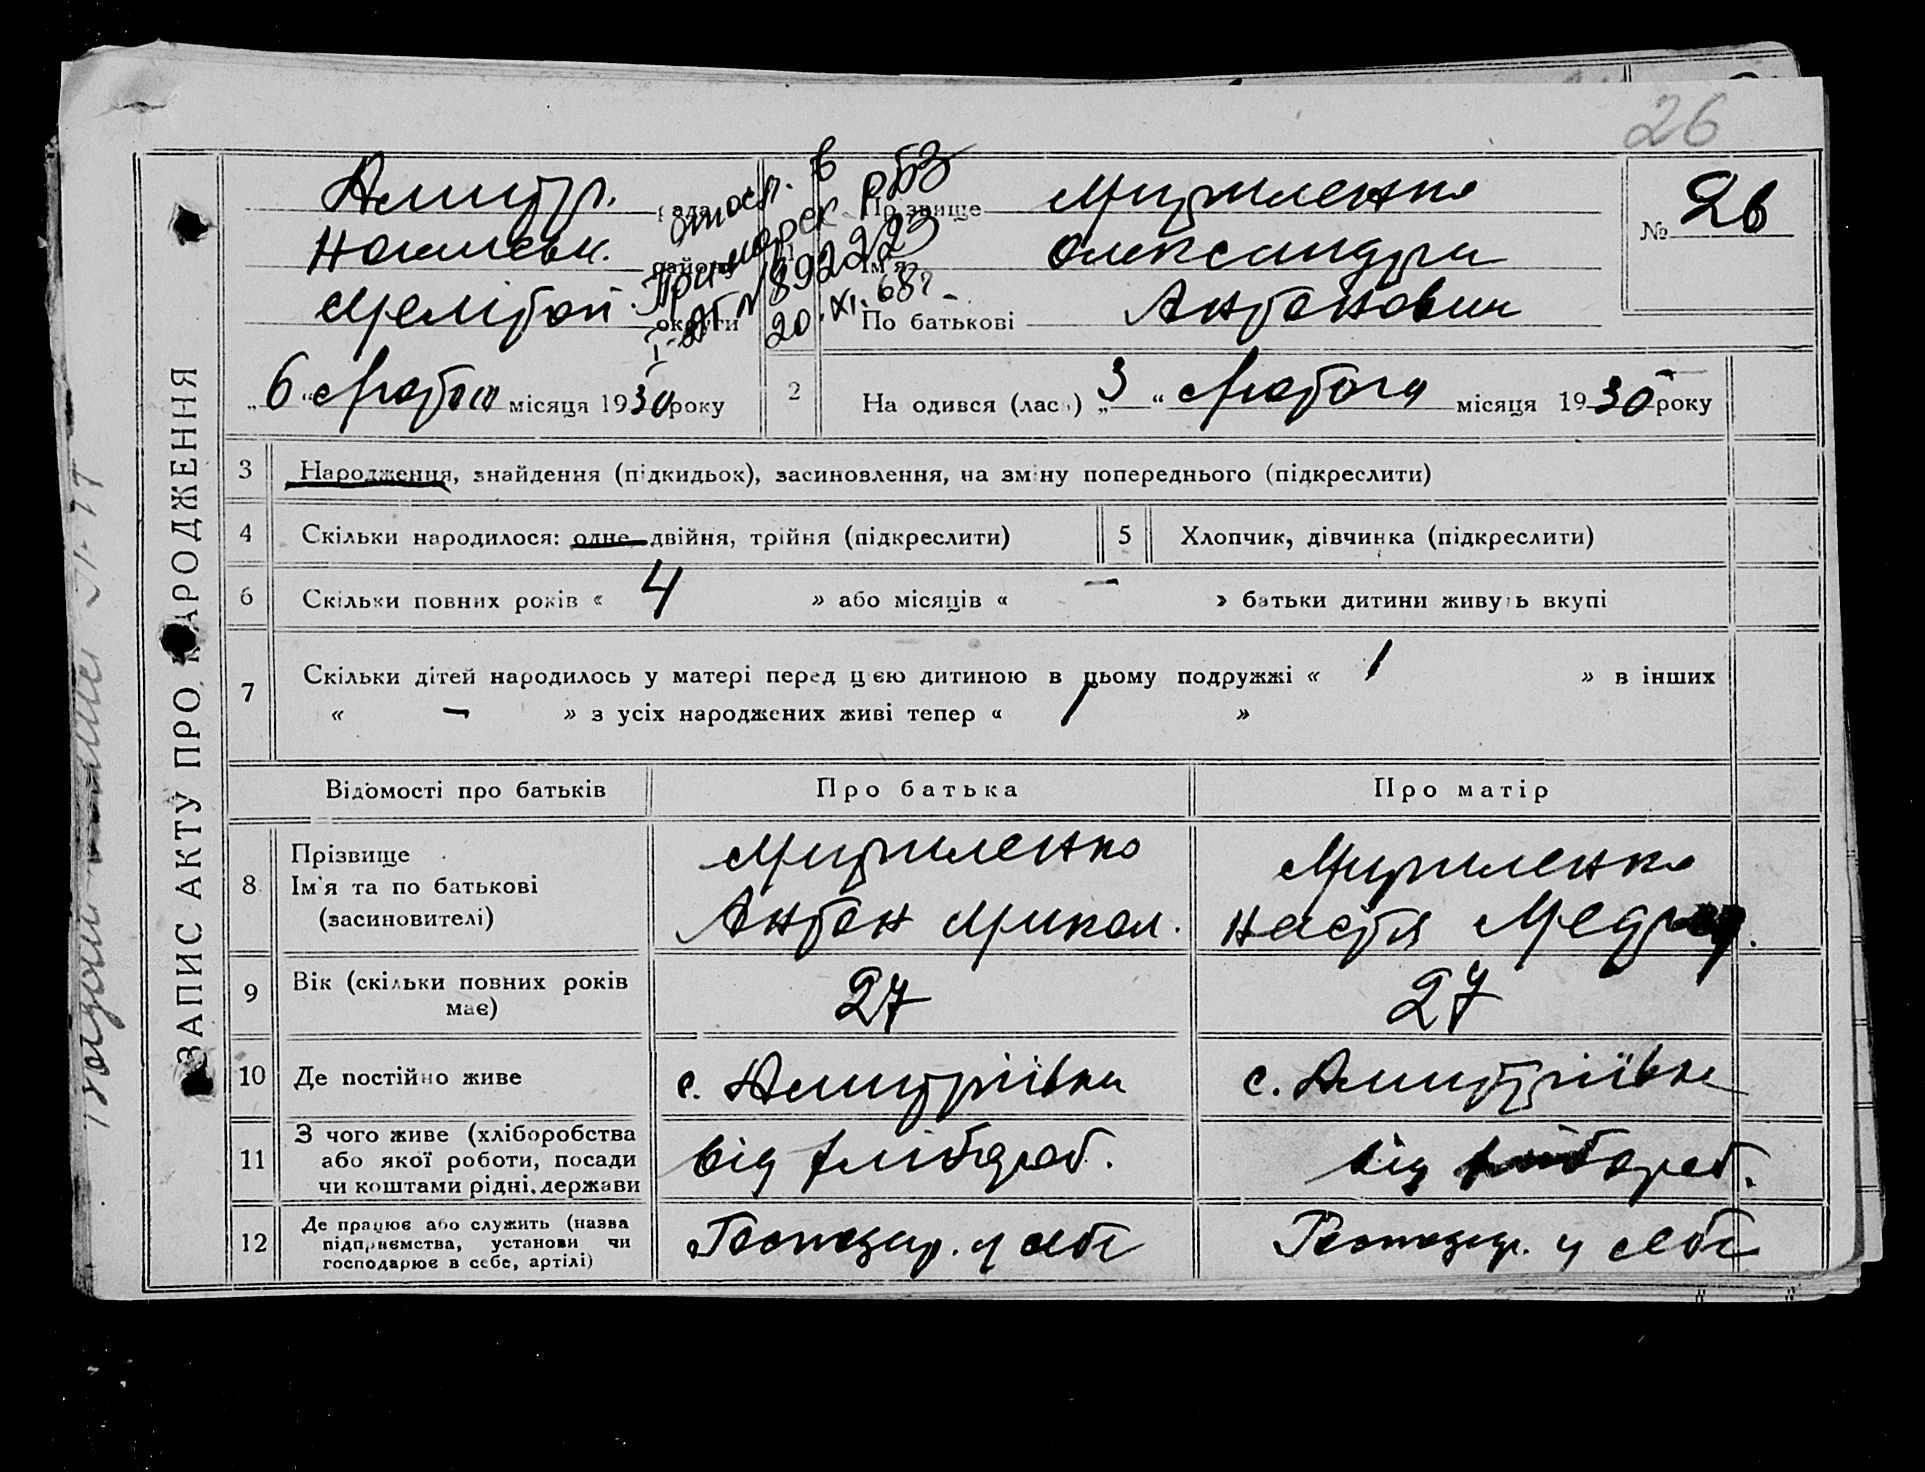 26
Дмитр. ради
Ногаськ. району
Мелітоп. округи
отосл. в
Приморск РБЗ
I-АП № 892223
20.XI.68г
1
Прізвище Мирошленко
Ім'я Олександра
По батькові Антонович
№ 26
„6“ Лютого місяця 1930 року
2
Народився (лась) „3“ Лютого місяця 1930 року
ЗАПИС АКТУ ПРО НАРОДЖЕННЯ
3 Народження, знайдення (підкидьок), засиновлення, на зміну попереднього (підкреслити)
4 Скільки народилося: одне, двійня, трійня (підкреслити)
5 Хлопчик, дівчинка (підкреслити)
6 Скільки повних років « 4 » або місяців « – » батьки дитини живуть вкупі
7 Скільки дітей народилось у матері перед цією дитиною в цьому подружжі « 1 » в інших
« – » з усіх народжених живі тепер « 1 »
Відомості про батьків Про батька Про матір
8 Прізвище
Ім'я та по батькові
(засиновителі)
Мирошленко
Антон Микол.
Мирошленко
Настя
9 Вік (скільки повних років
має)
27
27
10 Де постійно живе
с. Дмитріївка
с. Дмитріївка
11 З чого живе (хліборобства
або якої роботи, посади
чи коштами рідні, держави
від хлібороб.
від хлібороб.
12 Де працює або служить (назва
підприємства, установи чи
господарює в себе, артілі)
Господар. у себе
Господар. у себе